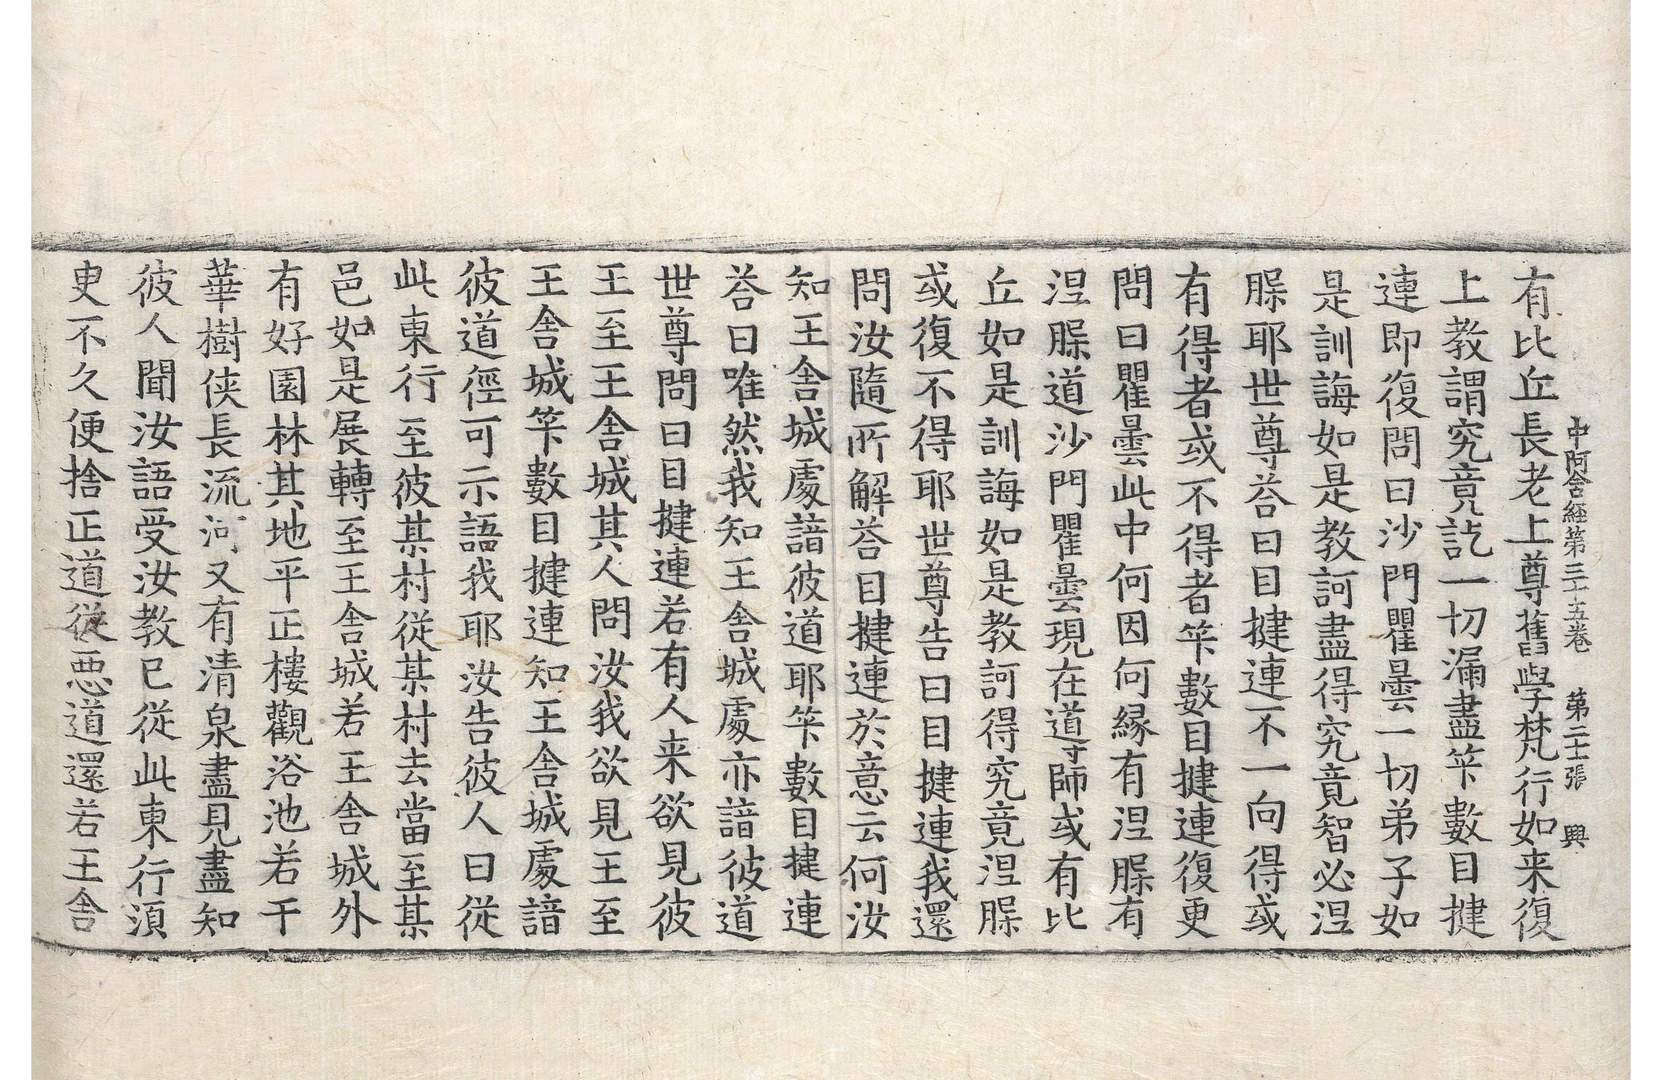 中阿含經第三十五卷 第二十一張 興
有比丘長老上尊舊學梵行如来復
上教謂究竟訖一切漏盡筭數目揵
連即復問曰沙門瞿曇一切弟子如
是訓誨如是教訶盡得究竟智必涅
槃耶世尊荅曰目揵連不一向得或
有得者或不得者筭數目揵連復更
問曰瞿曇此中何因何縁有涅槃有
涅槃道沙門瞿曇現在導師或有比
丘如是訓誨如是教訶得究竟涅槃
或復不得耶世尊告曰目揵連我還
問汝隨所解荅目揵連於意云何汝
知王舍城處諳彼道耶筭數目揵連
荅曰唯然我知王舍城處亦諳彼道
世尊問曰目揵連若有人来欲見彼
王至王舍城其人問汝我欲見王至
王舍城筭數目揵連知王舍城處諳
彼道徑可示語我耶汝告彼人曰從
此東行至彼某村從某村去當至某
邑如是展轉至王舍城若王舍城外
有好園林其地平正樓觀浴池若干
華樹俠長流河又有清泉盡見盡知
彼人聞汝語受汝教已從此東行須
臾不久便捨正道從惡道還若王舍